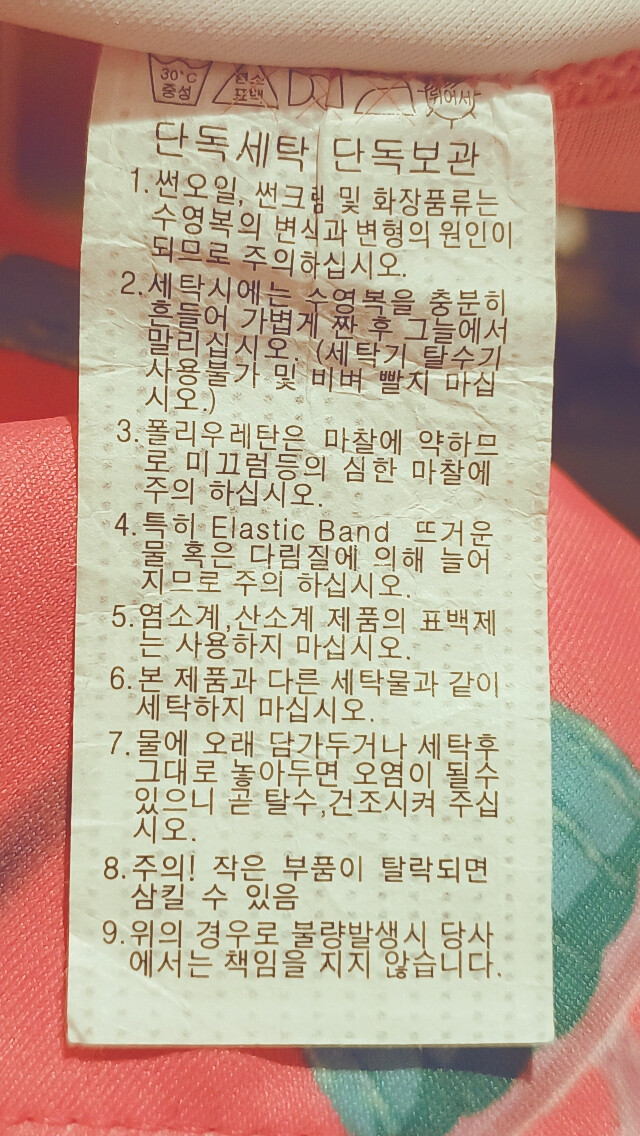 30°C
중성
염소
표백
뉘어서
단독세탁 단독보관
1. 썬오일, 썬크림 및 화장품류는
수영복의 변식과 변형의 원인이
되므로 주의하십시오.
2. 세탁시에는 수영복을 충분히
흔들어 가볍게 짠 후 그늘에서
말리십시오. (세탁기 탈수기
사용불가 및 비벼 빨지 마십
시오.)
3. 폴리우레탄은 마찰에 약하므
로 미끄럼등의 심한 마찰에
주의 하십시오.
4. 특히 Elastic Band 뜨거운
물 혹은 다림질에 의해 늘어
지므로 주의 하십시오.
5. 염소계,산소계 제품의 표백제
는 사용하지 마십시오.
6. 본 제품과 다른 세탁물과 같이
세탁하지 마십시오.
7. 물에 오래 담가두거나 세탁후
그대로 놓아두면 오염이 될수
있으니 곧 탈수,건조시켜 주십
시오.
8. 주의! 작은 부품이 탈락되면
삼킬 수 있음
9. 위의 경우로 불량발생시 당사
에서는 책임을 지지 않습니다.